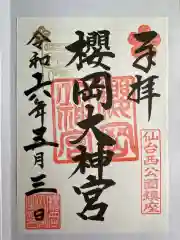 奉拝
櫻岡大神宮
仙台西公園鎮座
令和六年五月三日